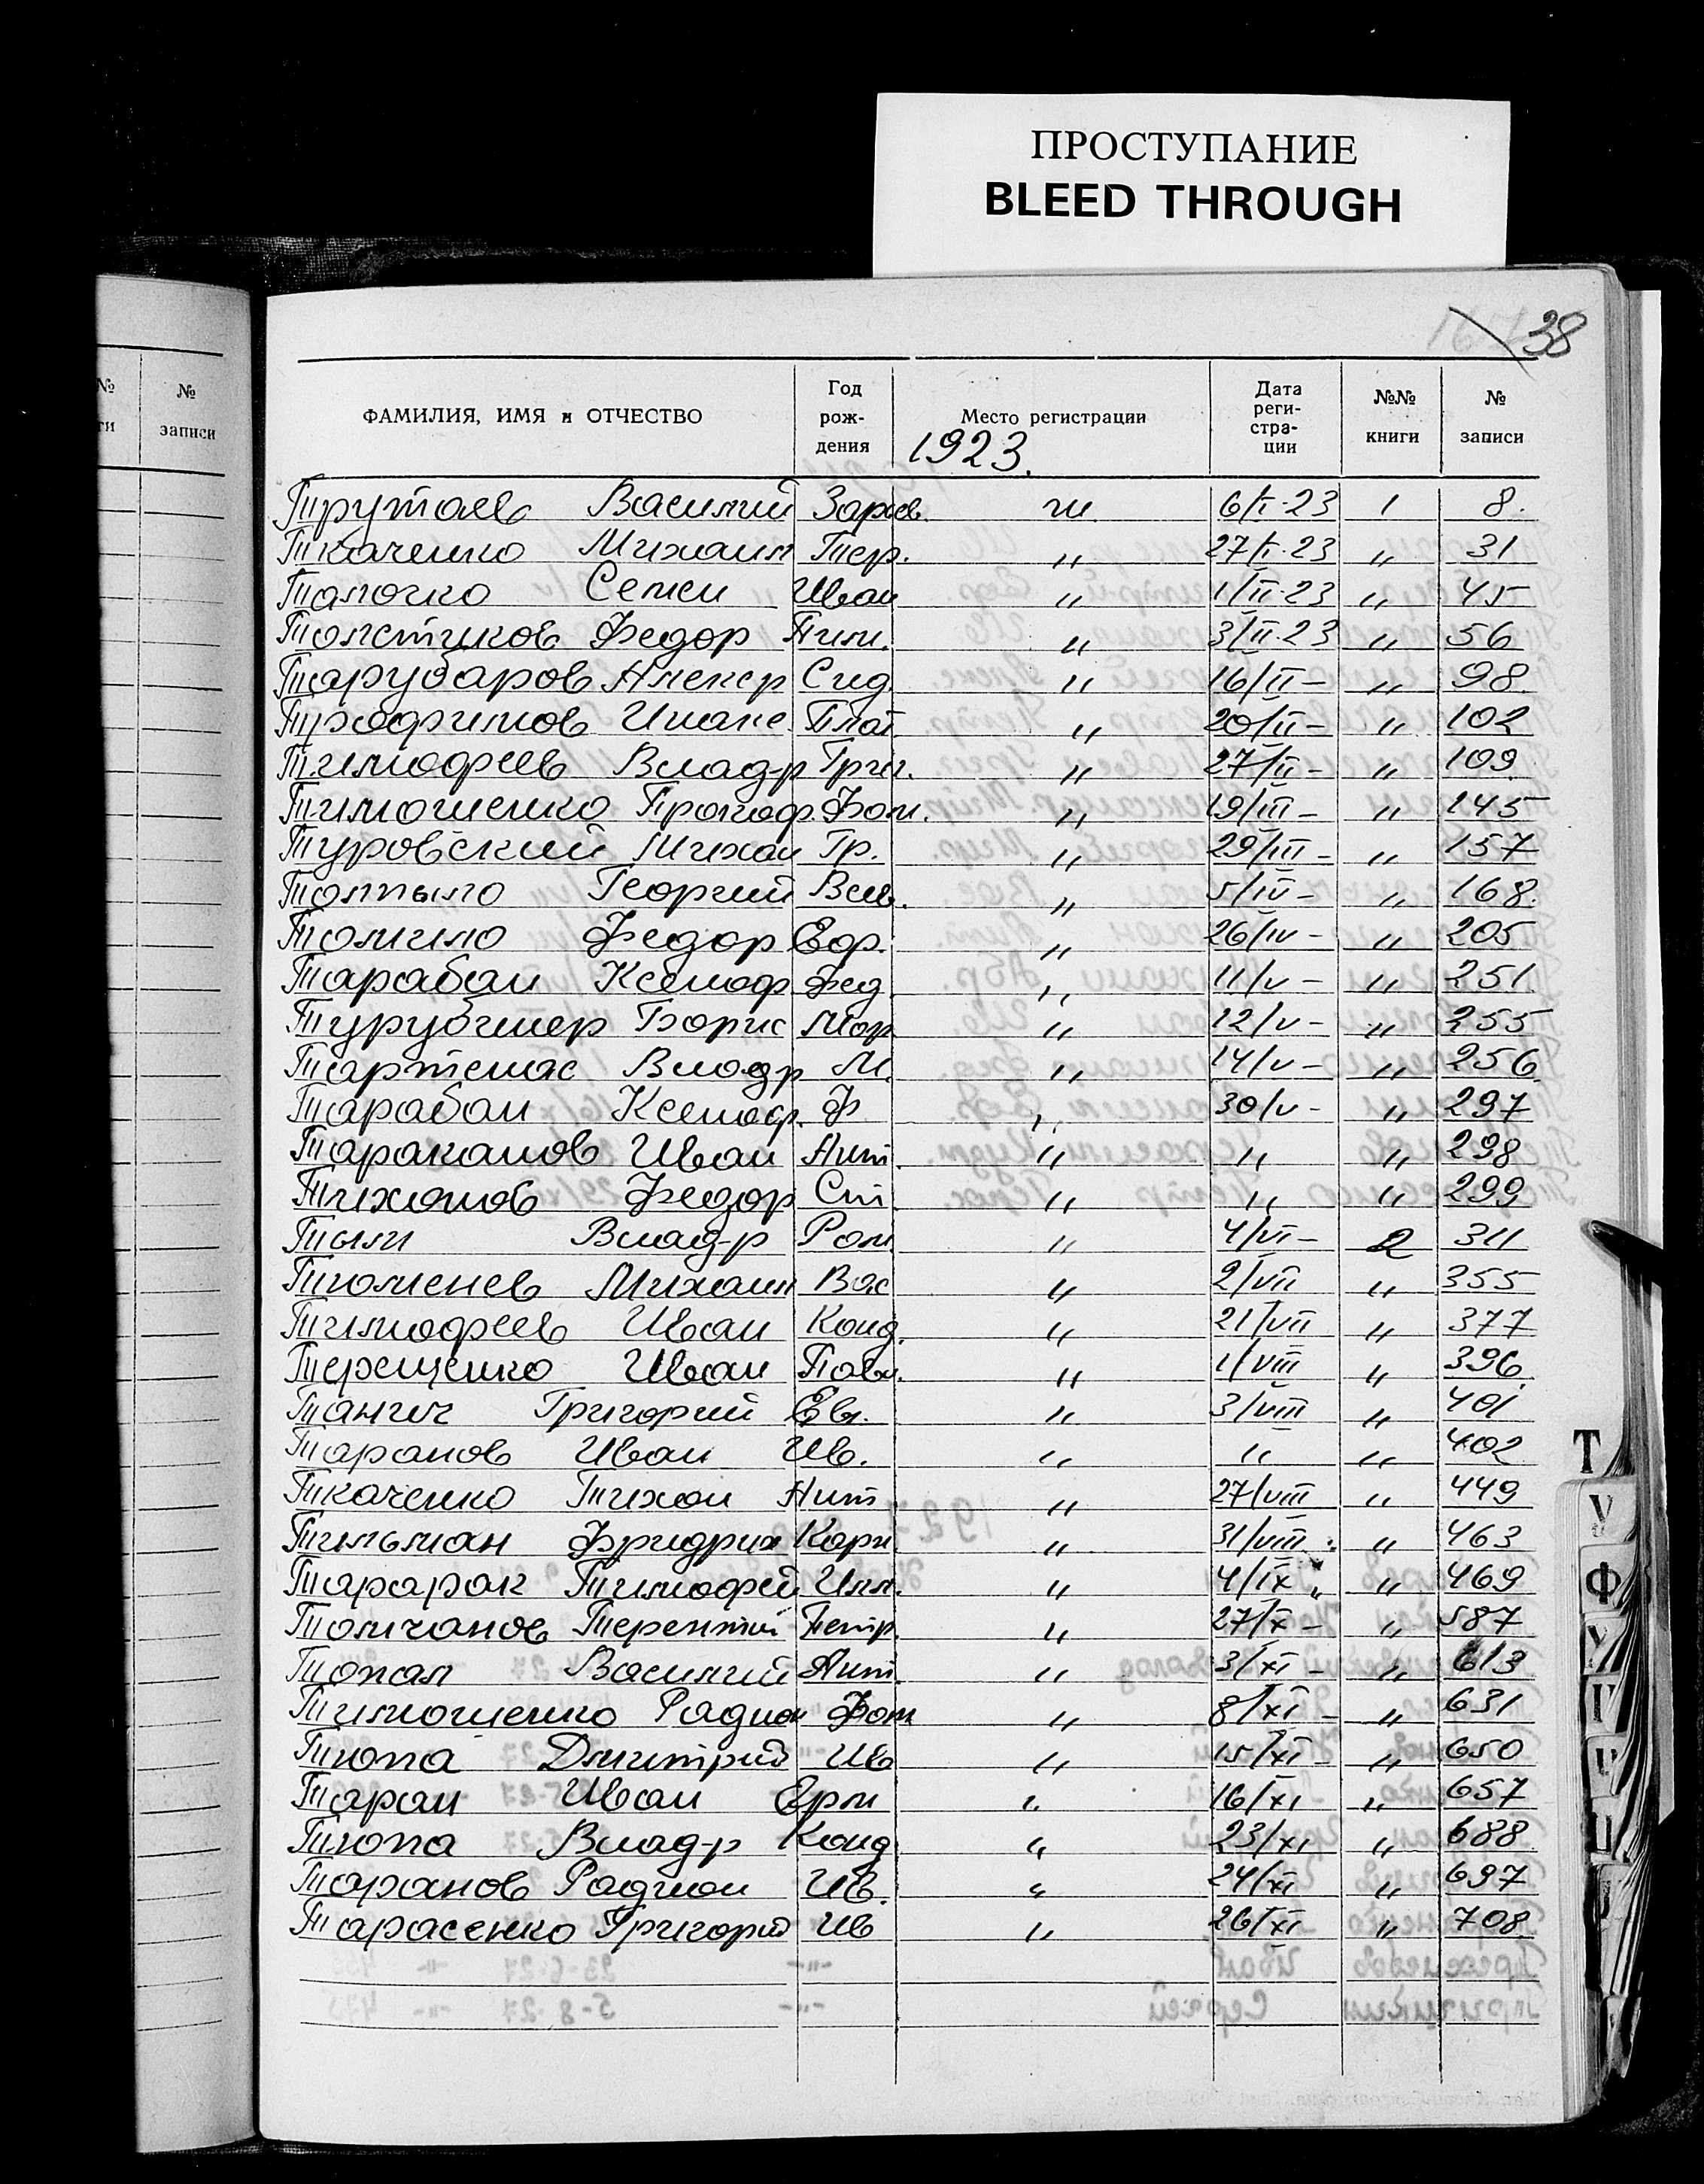 ПРОСТУПАНИЕ
BLEED THROUGH
38
№ записи
ФАМИЛИЯ, ИМЯ и ОТЧЕСТВО Год рождения Место регистрации Дата регистрации №№ книги № записи
1923.
Трутаев Василий ги 6/I-23 1 8.
Ткаченко Михаил Тер. " 27/I-23 " 31
Талочко Семен Иван " 1/II-23 " 45
Толстиков Федор " 3/II-23 " 56
Тарубаров Алекср Сид. " 16/II- " 98.
Трофимов Плат. " 20/II- " 102
Тимофеев Влад-р Григ. " 27/II- " 109
Тимошенко Прокоф. Фом. " 19/III- " 145
Туровский Михаи Гр. " 29/III- " 157
Толпыго Георгий " 5/IV- " 168.
Томило Федор Еф. " 26/IV- " 205
Тарабан Ксеноф Фед. " 11/V- " 251.
Турубинер Борис Мор. " 12/V- " 255
Владр М. " 14/V- " 256.
Тарабан Ксеноф. Ф. " 30/V- " 297
Тараканов Иван Ант. " " " 298
Тихонов Федор Ст. " " " 299
Тыли Влад-р Ром. " 4/VI- 2 311
Тюменев Михаил Вас " 2/VII " 355
Тимофеев Иван Конд. " 21/VII " 377
Терещенко Иван Павл. " 1/VIII " 396
Тангич Григорий Ев. " 3/VIII " 401
Таранов Иван Ив. " " " 402
Ткаченко Тихон Ант. " 27/VIII " 449
Тильман Фридрих Карл. " 31/VIII " 463
Тарарак Тимофей Илл. " 4/IX " 469
Толичанов Терентий Петр. " 27/X- " 587
Топал Василий Ант. " 3/XI- " 613
Тимошенко Радион Фом " 8/XI- " 631
Тюпа Дмитрий Ив " 15/XI- " 650
Таран Иван Ерм " 16/XI " 657
Тюпа Влад-р Конд " 23/XI " 688
Таранов Радион Ив. " 24/XI " 697
Тарасенко Григорий Ив " 26/XI " 708.
Т
У
Ф